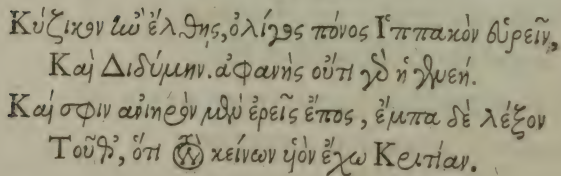 Κύζικον ἢν ἔλθης, ὀλίγος πόνος Ἱππακὸν εὑρεῖν,
Καὶ Διδύμην. ἀφανὴς οὔτι γὰρ ἡ γενεή.
Καί σφιν ἀνιηρὸν μὲν ἐρεῖς ἔπος, ἔμπα δὲ λέξον
Τοῦθ', ὅτι κείνων ὑὸν ἔχω Κριτίαν.